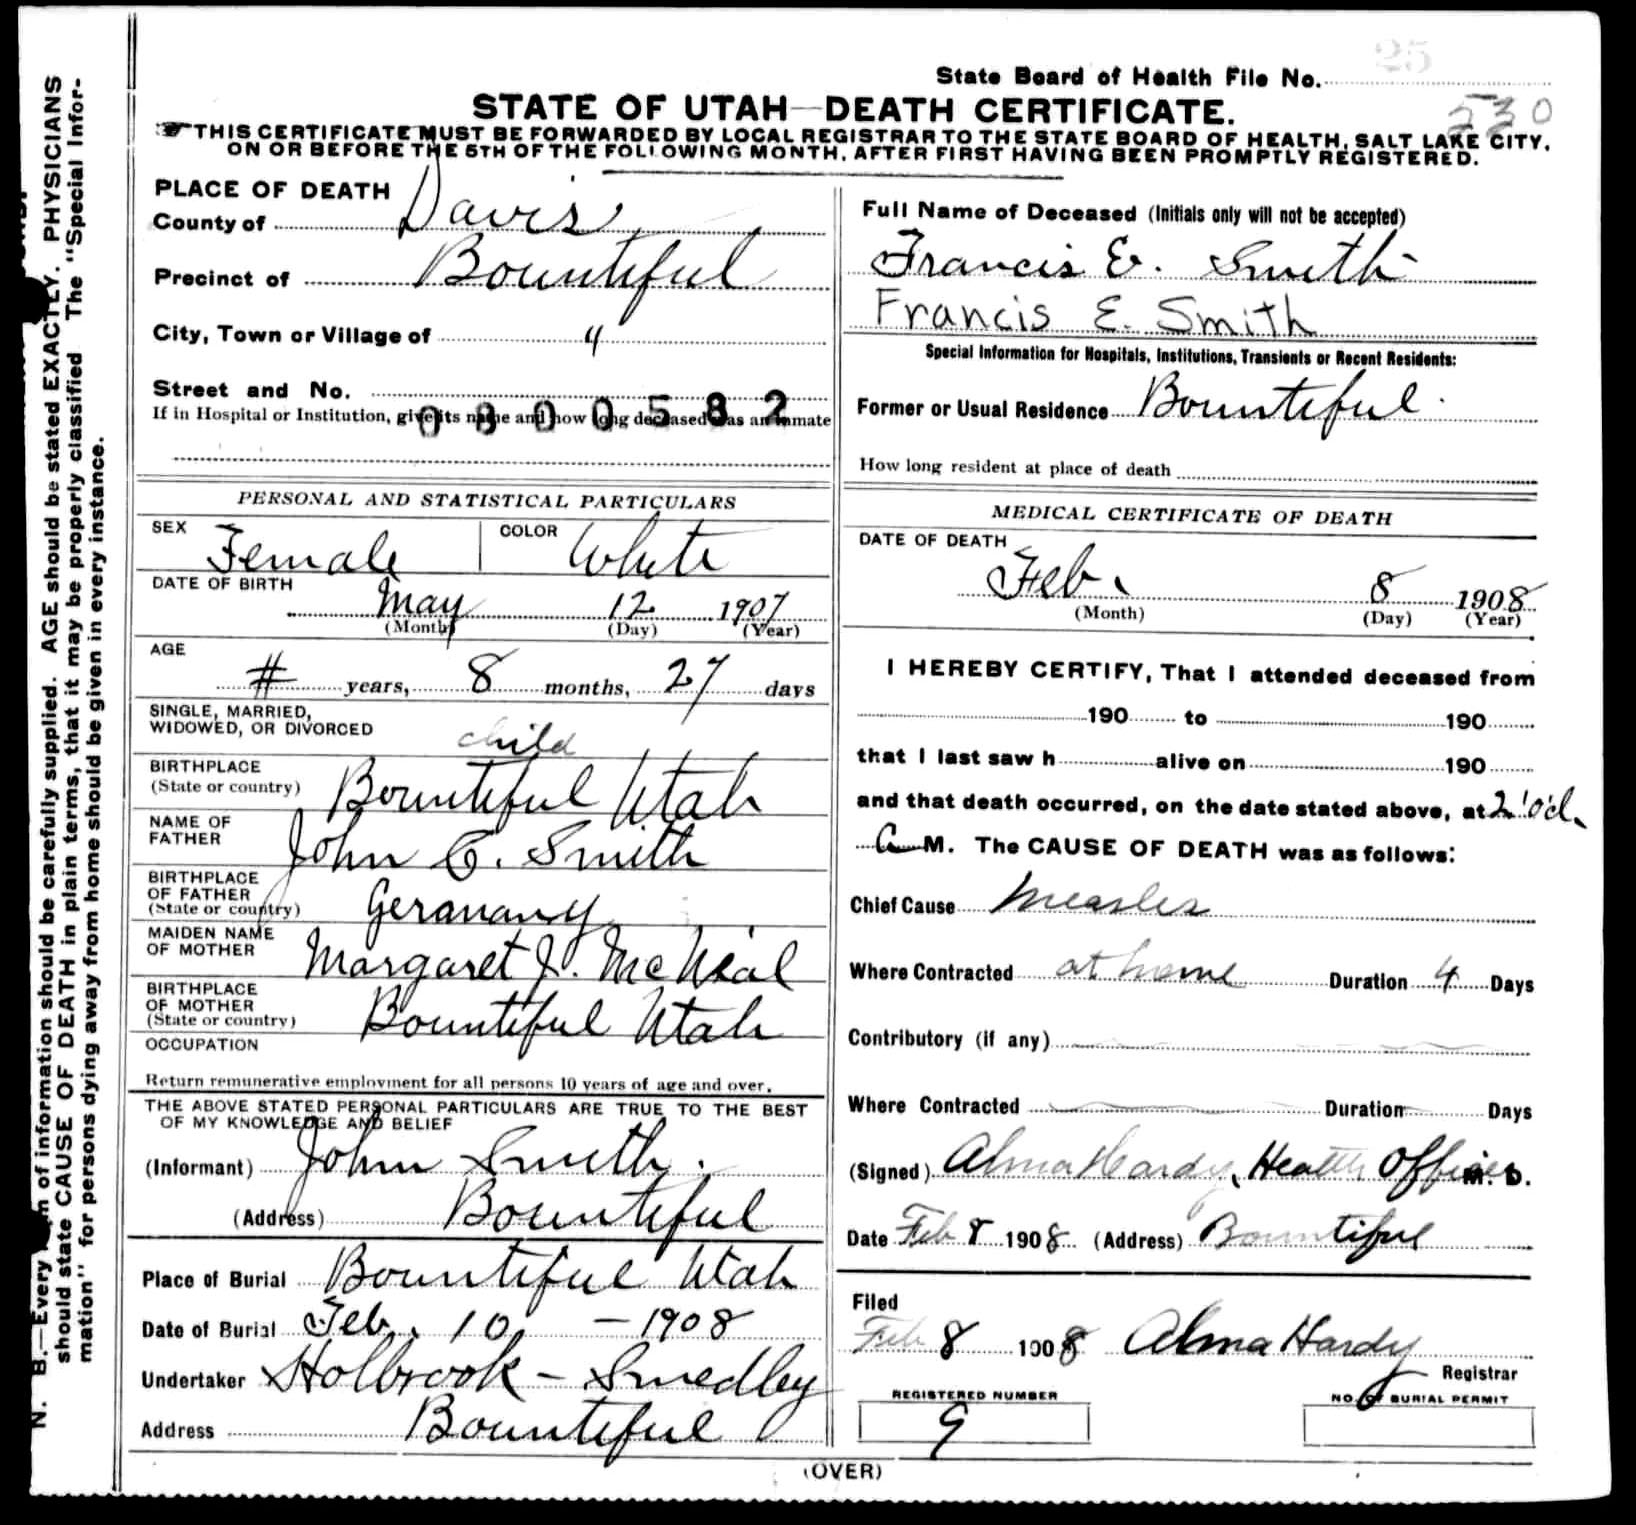 25
State Board of Health File No.
530
STATE OF UTAH—DEATH CERTIFICATE.
THIS CERTIFICATE MUST BE FORWARDED BY LOCAL REGISTRAR TO THE STATE BOARD OF HEALTH, SALT LAKE CITY,
ON OR BEFORE THE 5TH OF THE FOLLOWING MONTH, AFTER FIRST HAVING BEEN PROMPTLY REGISTERED.
PLACE OF DEATH
County of Davis
Precinct of Bountiful
City, Town or Village of "
Street and No.
If in Hospital or Institution, give its name and how long deceased was an inmate
0800582
PERSONAL AND STATISTICAL PARTICULARS
SEX Female COLOR White
DATE OF BIRTH
May 12 1907
(Month) (Day) (Year)
AGE
# years, 8 months, 27 days
SINGLE, MARRIED,
WIDOWED, OR DIVORCED child
BIRTHPLACE
(State or country) Bountiful Utah
NAME OF
FATHER John C. Smith
BIRTHPLACE
OF FATHER
(State or country) Geramany
MAIDEN NAME
OF MOTHER Margaret J. McNeal
BIRTHPLACE
OF MOTHER
(State or country) Bountiful Utah
OCCUPATION
Return remunerative employment for all persons 10 years of age and over.
THE ABOVE STATED PERSONAL PARTICULARS ARE TRUE TO THE BEST
OF MY KNOWLEDGE AND BELIEF
(Informant) John Smith.
(Address) Bountiful
Place of Burial Bountiful Utah
Date of Burial Feb. 10 - 1908
Undertaker Holbrook - Smedley
Address Bountiful
Full Name of Deceased (Initials only will not be accepted)
Francis E. Smith
Francis E. Smith
Special Information for Hospitals, Institutions, Transients or Recent Residents:
Former or Usual Residence Bountiful.
How long resident at place of death
MEDICAL CERTIFICATE OF DEATH
DATE OF DEATH
Feb. 8 1908
(Month) (Day) (Year)
I HEREBY CERTIFY, That I attended deceased from
190 to 190
that I last saw h alive on 190
and that death occurred, on the date stated above, at 2 'ocl.
A M. The CAUSE OF DEATH was as follows:
Chief Cause Measles
Where Contracted at home Duration 4 Days
Contributory (if any)
Where Contracted Duration Days
(Signed) Alma Hardy, Health Officer M. D.
Date Feb 8 1908 (Address) Bountiful
Filed
Feb 8 1908 Alma Hardy
Registrar
REGISTERED NUMBER
9
NO. OF BURIAL PERMIT
(OVER)
N. B.—Every of information should be carefully supplied. AGE should be stated EXACTLY. PHYSICIANS
should state CAUSE OF DEATH in plain terms, that it may be properly classified The "Special Infor-
mation" for persons dying away from home should be given in every instance.